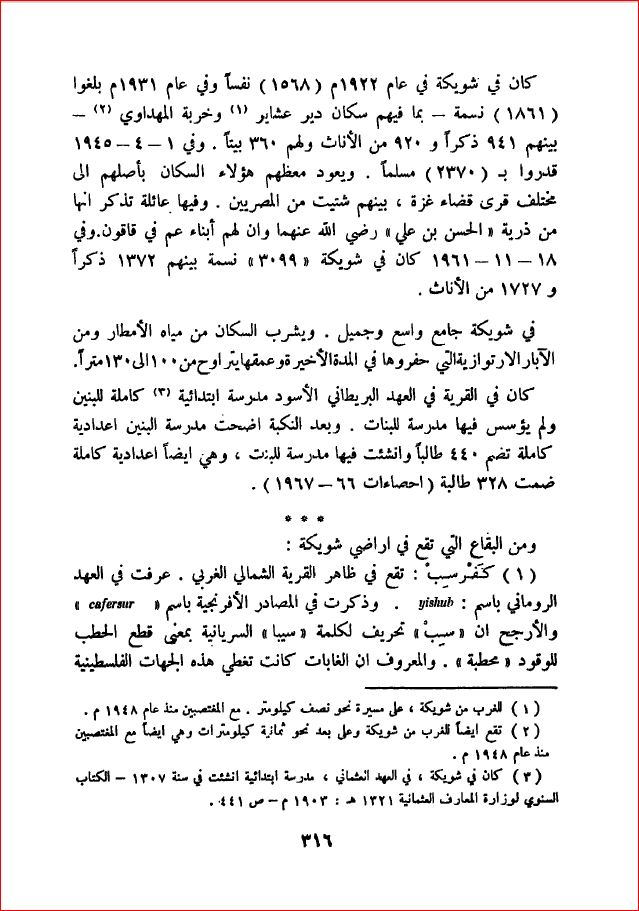 كان في شويكة في عام ١٩٢٢م (١٥٦٨) نفساً وفي عام ١٩٣١م بلغوا
(١٨٦١) نسمة – بما فيهم سكان دير عشاير (١) وخربة المهداوي (٢) –
بينهم ٩٤١ ذكراً و ٩٢٠ من الأناث ولهم ٣٦٠ بيتاً . وفي ١ – ٤ – ١٩٤٥
قدروا بـ (٢٣٧٠) مسلماً . ويعود معظمهم هؤلاء السكان بأصلهم الى
مختلف قرى قضاء غزة ، بينهم شتيت من المصريين . وفيها عائلة تذكر انها
من ذرية «الحسن بن علي» رضي الله عنهما وان لهم أبناء عم في قاقون.وفي
١٨ – ١١ – ١٩٦١ كان في شويكة «٣٠٩٩» نسمة بينهم ١٣٧٢ ذكراً
و ١٧٢٧ من الأناث .
في شويكة جامع واسع وجميل . ويشرب السكان من مياه الأمطار ومن
الآبار الارتوازية التي حفروها في المدة الأخيرة وعمقها يتراوح من ١٠٠ الى ١٣٠ متراً.
كان في القرية في العهد البريطاني الأسود مدرسة ابتدائية (٣) كاملة للبنين
ولم يؤسس فيها مدرسة للبنات . وبعد النكبة اضحت مدرسة البنين اعدادية
كاملة تضم ٤٤٠ طالباً وانشئت فيها مدرسة للبنت ، وهي ايضاً اعدادية كاملة
ضمت ٣٢٨ طالبة (احصاءات ٦٦ – ١٩٦٧) .
* * *
ومن البقاع التي تقع في اراضي شويكة :
(١) كَفْر سِيبْ : تقع في ظاهر القرية الشمالي الغربي . عرفت في العهد
الروماني باسم : yishub . وذكرت في المصادر الأفرنجية باسم « cafersur »
والأرجح ان «سيبْ» تحريف لكلمة «سيبا» السريانية بمعنى قطع الحطب
للوقود «محطبة» . والمعروف ان الغابات كانت تغطي هذه الجهات الفلسطينية
(١) للغرب من شويكة ، على مسيرة نحو نصف كيلومتر . مع المغتصبين منذ عام ١٩٤٨ م .
(٢) تقع ايضاً للغرب من شويكة وعلى بعد نحو ثمانية كيلومترات وهي ايضاً مع المغتصبين
منذ عام ١٩٤٨ م .
(٣) كان في شويكة ، في العهد العثماني ، مدرسة ابتدائية انشئت في سنة ١٣٠٧ – الكتاب
السنوي لوزارة المعارف العثمانية ١٣٢١ هـ : ١٩٠٣ م – ص ٤٤١ .
٣١٦